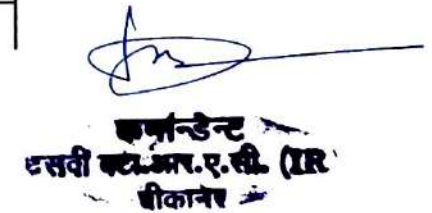 कमांडेन्ट
दसवीं बटा.आर.ए.सी. (IR
बीकानेर